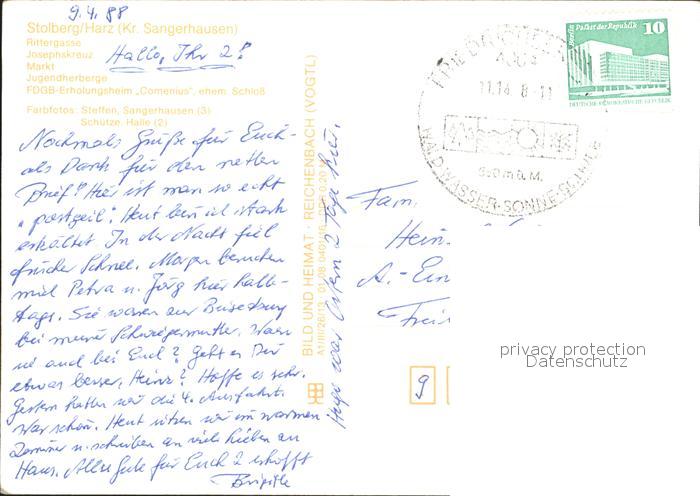 9.4.88
Stolberg/Harz (Kr. Sangerhausen)
Rittergasse
Josephskreuz
Markt
Jugendherberge
FDGB-Erholungsheim „Comenius", ehem. Schloß
Hallo, Ihr 2!
Farbfotos: Steffen, Sangerhausen (3)
Schütze, Halle (2)
Nochmals Grüße für Euch
als Dank für den netten
Brief! Hier ist man so echt
„postgeil". Heut bin ich stark
erkältet. In der Nacht fiel
frischer Schnee. Morgen besuchen
mich Petra u. Jörg hier halb-
tags. Sie waren zur
bei meiner Schwiegermutter. Waren
sie auch bei Euch? Geht es Dir
etwas besser, Heinz? Hoffe es sehr.
Gestern hatten wir die 4. Ausfahrt.
War schön. Heut sitzen wir im warmen
Zimmer u. schreiben an viele Lieben zu
Haus. Alles Gute für Euch 2 erhofft
Brigitte
war Ostern 2 Tage hier.
BILD UND HEIMAT · REICHENBACH (VOGTL)
A1/III/26/13 01 08 0401/16
Fam.
Hein
A.-Ein
Frei
9
Berlin Palast der Republik
10
DEUTSCHE DEMOKRATISCHE REPUBLIK
11.14 8-11
650 m ü. M.
WALD·WASSER·SONNE
privacy protection
Datenschutz